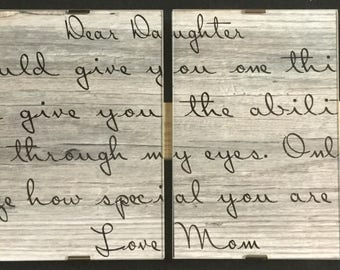 Dear Daughter
uld give you one thi
give you the abili
through my eyes. Onl
ze how special you are
Love Mom